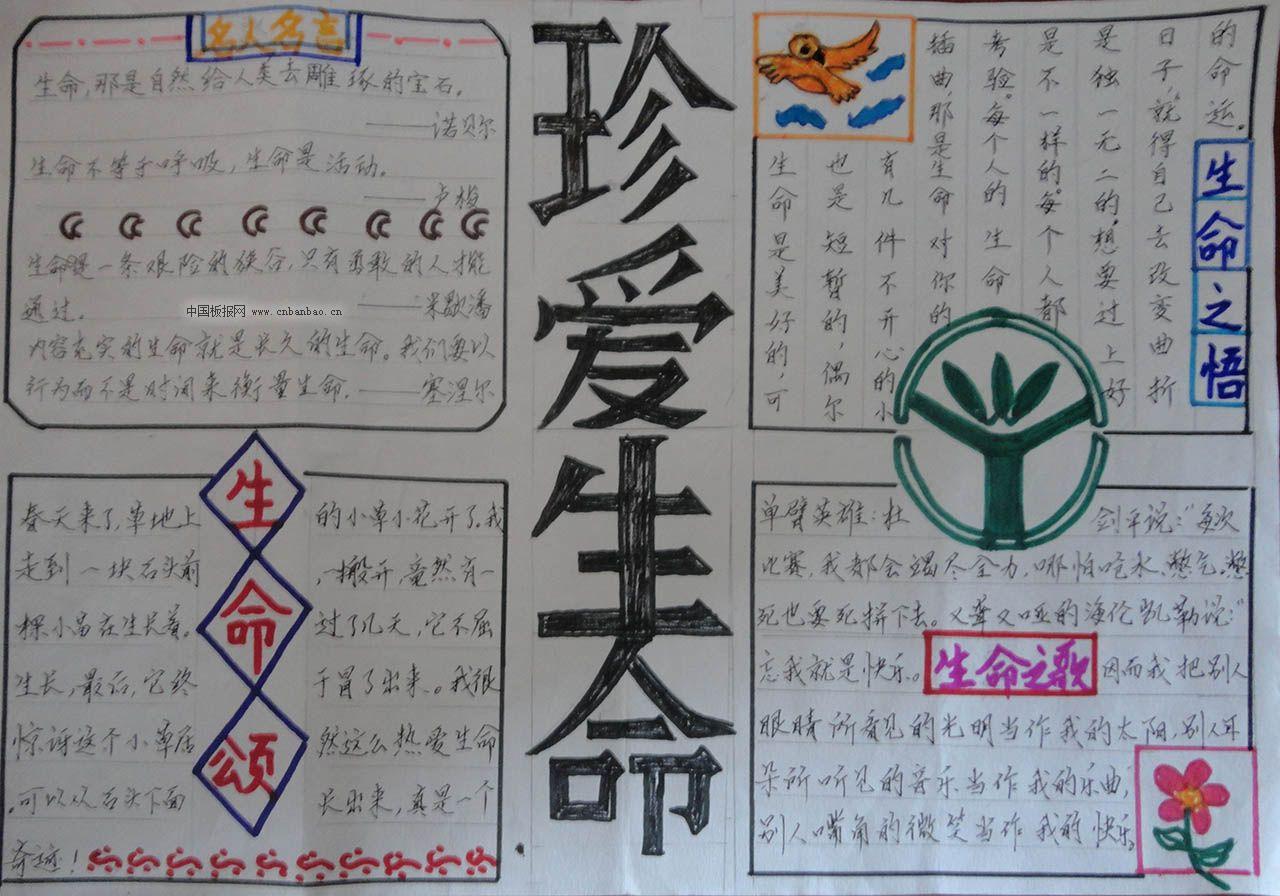 珍爱生命
名人名言
生命,那是自然给人类去雕琢的宝石。
——诺贝尔
生命不等于呼吸,生命是活动。
——卢梭
生命是一条艰险的狭谷,只有勇敢的人才能
通过。 ——米歇潘
中国板报网 www.cnbanbao.cn
内容充实的生命就是长久的生命。我们要以
行为而不是时间来衡量生命. ——塞涅尔
生命颂
春天来了,草地上的小草小花开了。我
走到一块石头前,一搬开,竟然有一
棵小苗在生长着。过了几天,它不屈
生长,最后,它终于冒了出来。我很
惊讶这个小草居然这么热爱生命
.可以从石头下面长出来,真是一个
奇迹!
生命之悟
生命是美好的,可
也是短暂的,偶尔
有几件不开心的小
插曲,那是生命对你的
考验。每个人的生命
是不一样的。每个人都
是独一无二的,想要过上好
日子,就得自己去改变曲折
的命运。
生命之歌
单臂英雄:杜剑平说:“每次
比赛,我都会竭尽全力,哪怕呛水、憋气。憋
死也要死拼下去。又聋又哑的海伦凯勒说:“
忘我就是快乐。因而我把别人
眼睛所看见的光明当作我的太阳,别人耳
朵所听见的音乐当作我的乐曲,
别人嘴角的微笑当作我的快乐。